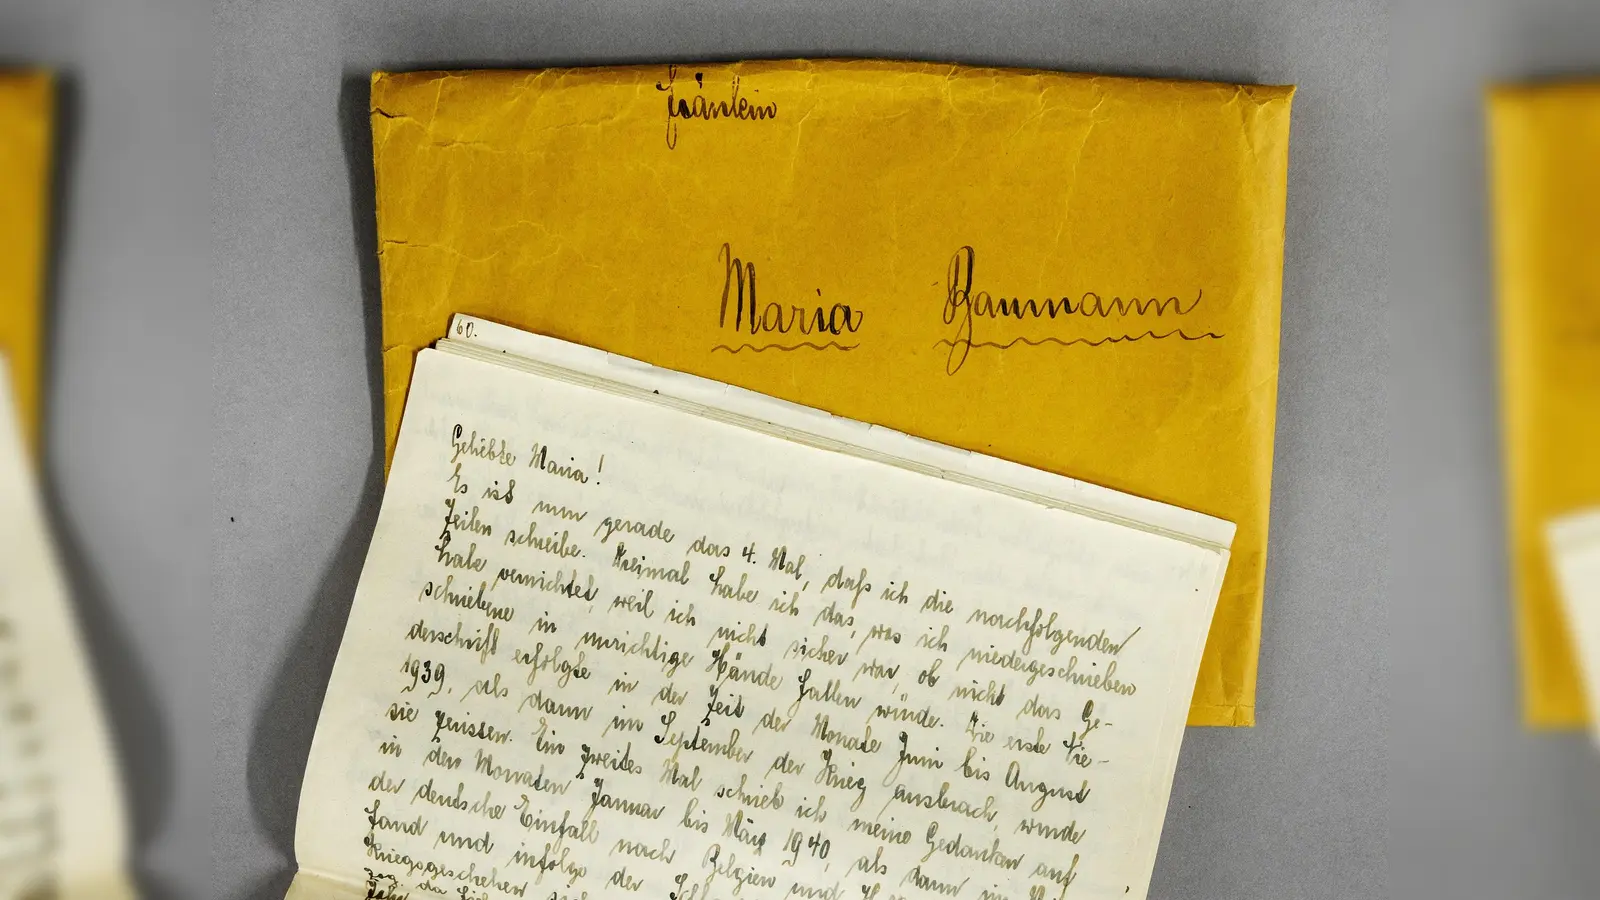 Fräulein
Maria Baumann
60.
Geliebte Maria!
Es ist nun gerade das 4. Mal, daß ich die nachfolgenden
Zeilen schreibe. Dreimal habe ich das, was ich niedergeschrieben
habe vernichtet, weil ich nicht sicher war, ob nicht das Ge-
schriebene in unrichtige Hände fallen würde. Die erste Nie-
derschrift erfolgte in der Zeit der Monate Juni bis August
1939, als dann im September der Krieg ausbrach, wurde
sie zerissen. Ein zweites Mal schrieb ich meine Gedanken auf
in den Monaten Januar bis März 1940, als dann im
der deutsche Einfall nach Belgien und
fand und infolge der
Kriegsgeschehen sich